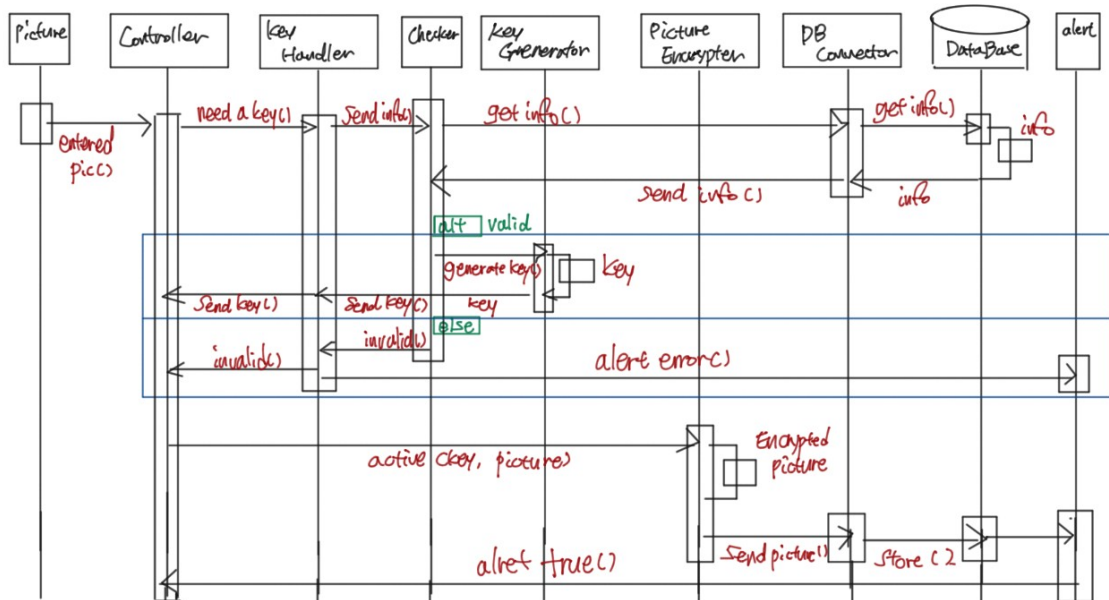 Picture
Controller
key
Handler
Checker
key
Generator
Picture
Encrypter
DB
Connector
DataBase
alert
need a key()
Send info()
get info()
get info()
info
entered
pic()
send info()
info
alt valid
generate key()
key
Send key()
Send key()
key
else
invalid()
invalid()
alert error()
active (key, picture)
Encrypted
picture
Send picture()
Store ( )
alret true()